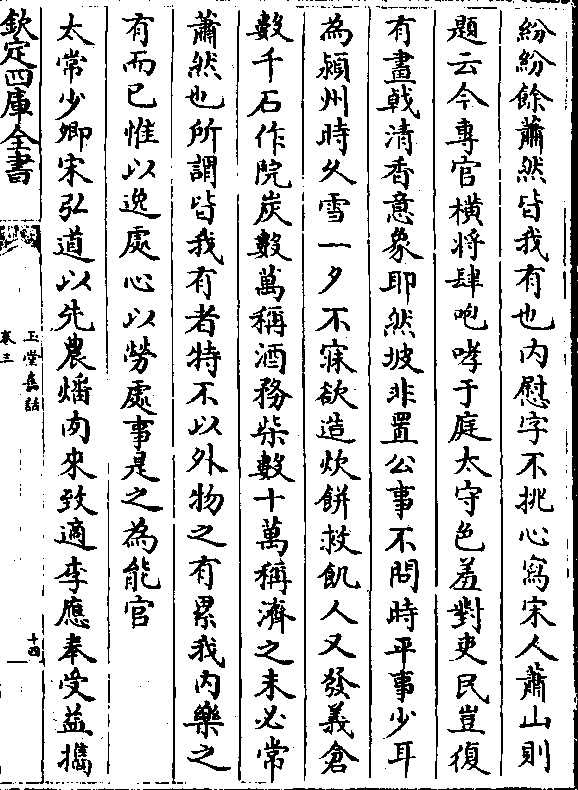 紛紛餘蕭然皆我有也内慰字不挑心寫宋人蕭山則
題云今專官橫將肆咆哮于庭太守色羞對吏民豈復
有畫戟清香意象耶然坡非置公事不問時平事少耳
為潁州時久雪一夕不寐欲造炊餅救飢人又發義倉
數千石作院炭數萬稱酒務柴數十萬稱濟之未必常
蕭然也所謂皆我有者特不以外物之有累我内樂之
有而已惟以逸處心以勞處事是之為能官
太常少卿宋弘道以先農燔肉來致適李應奉受益攜
欽定四庫全書
玉堂嘉話
卷三
十四